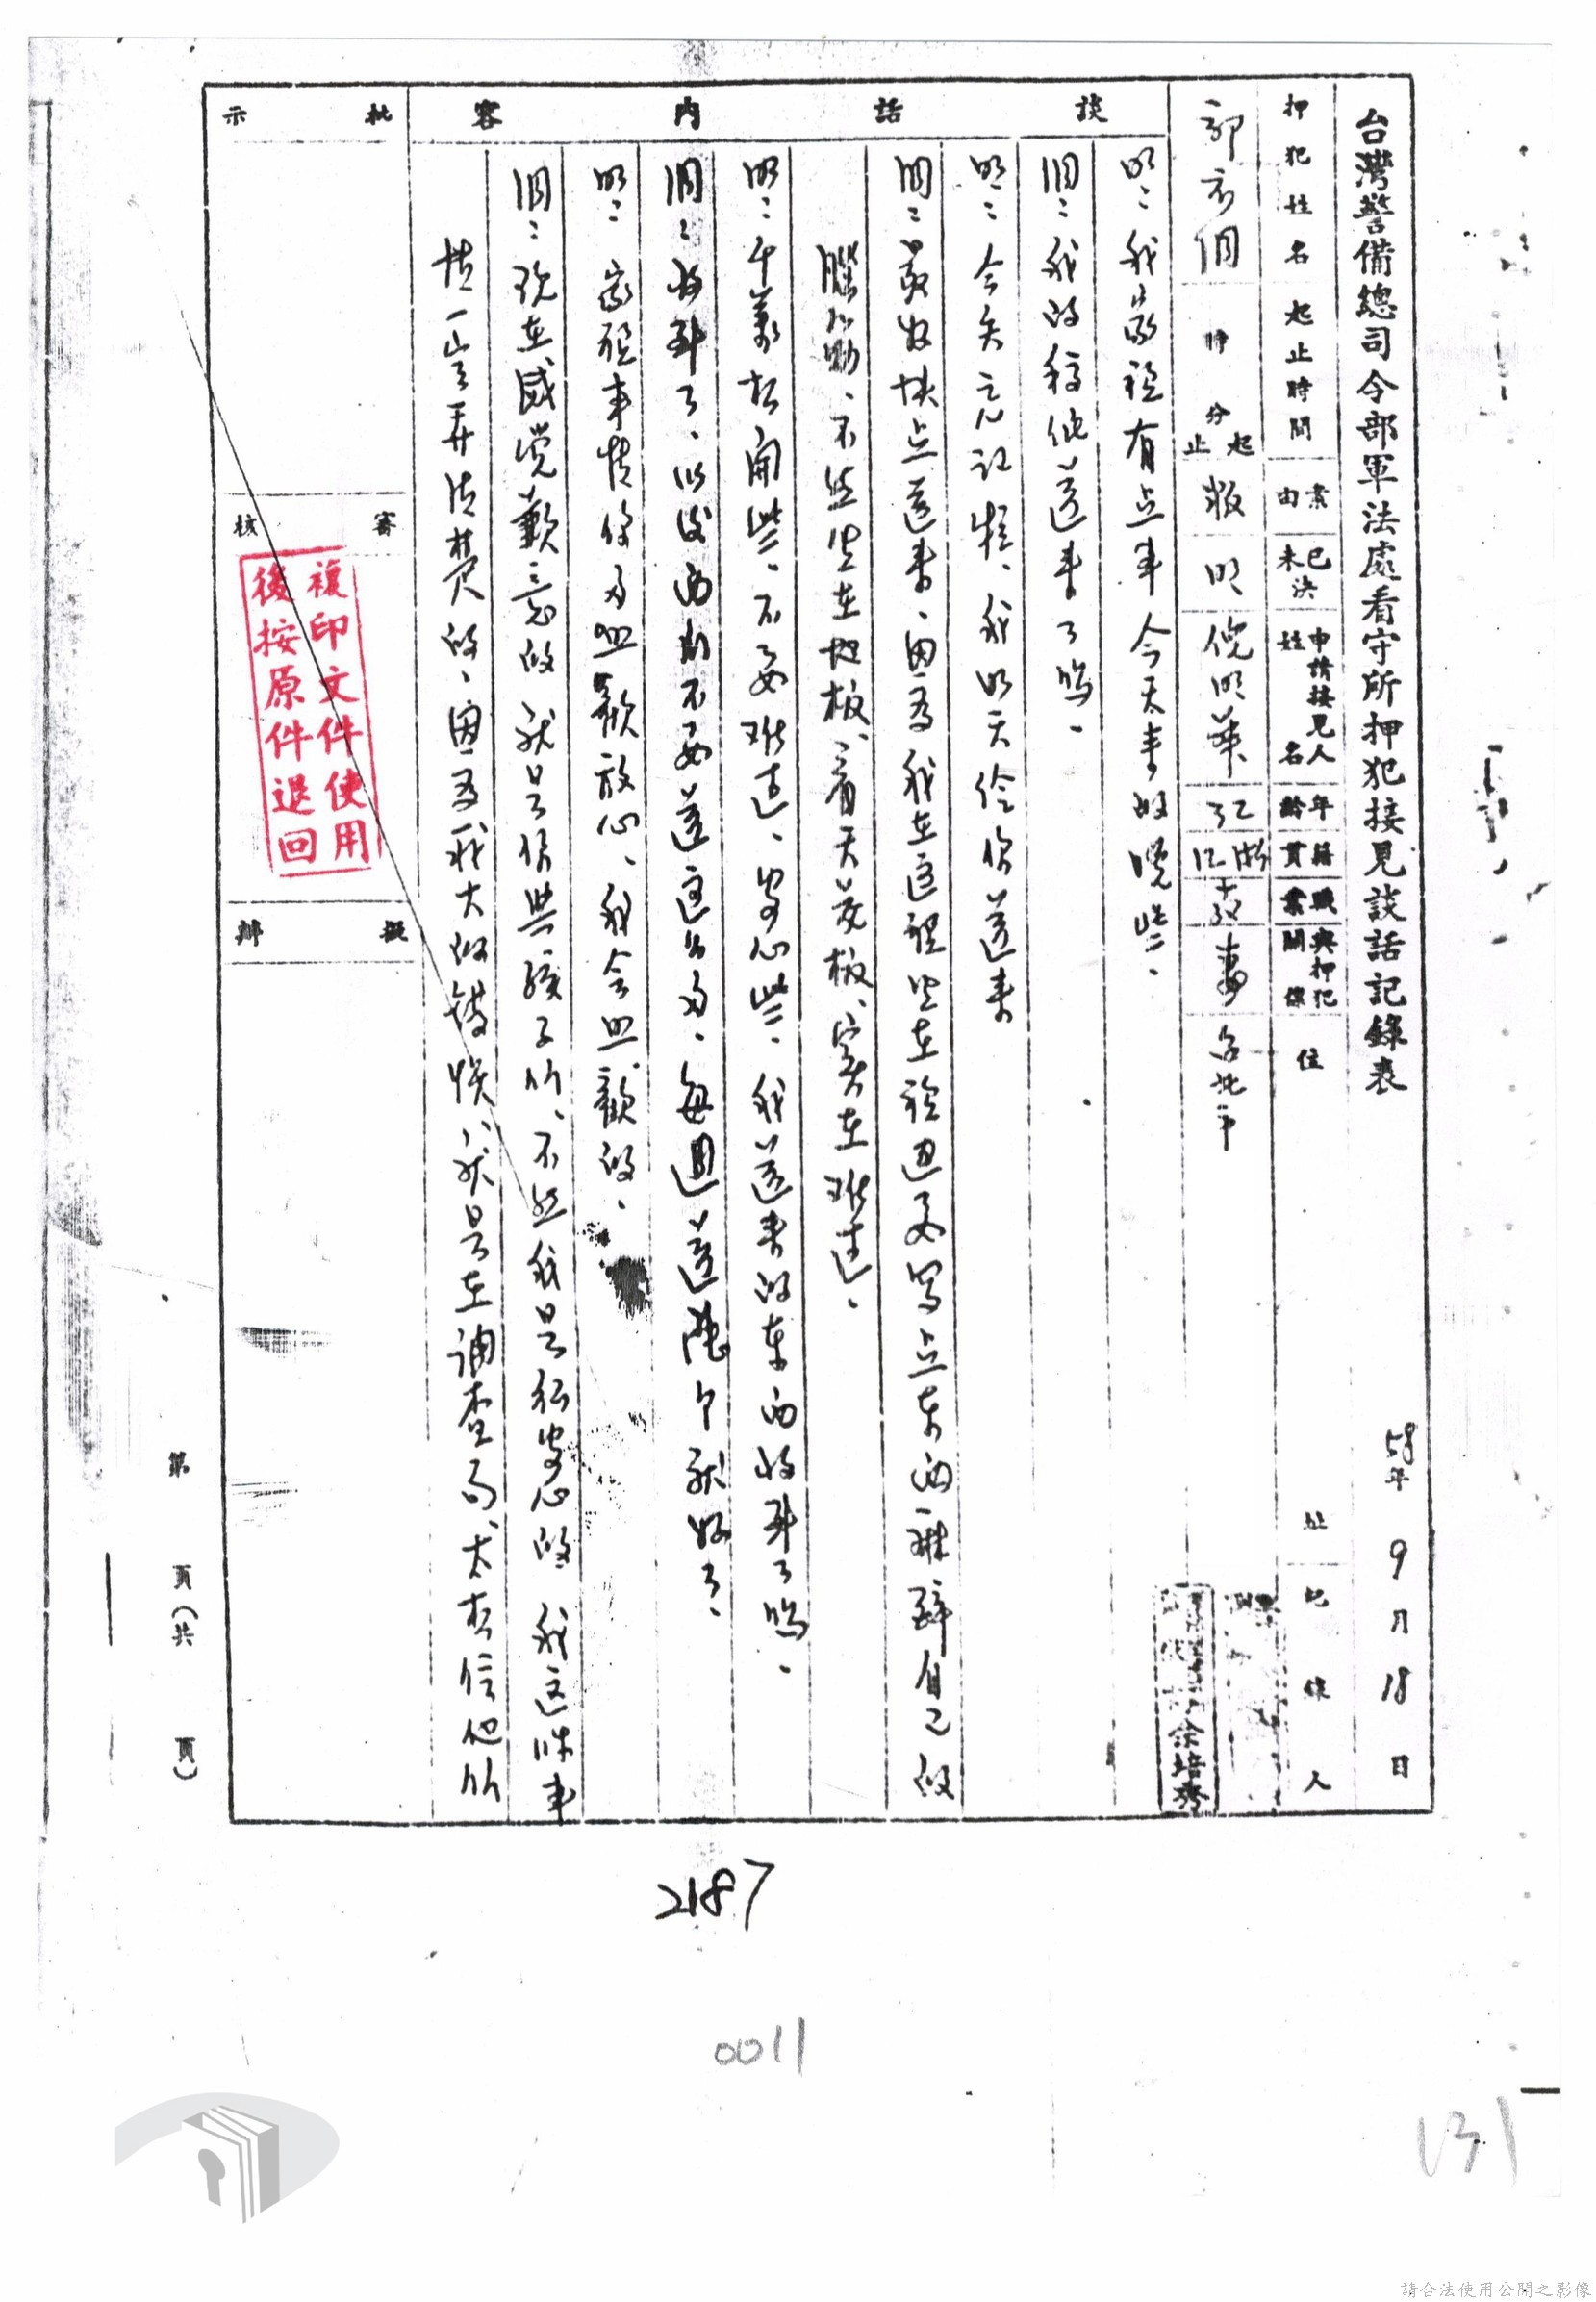 台灣警備總司令部軍法處看守所押犯接見談話記錄表
58年9月18日
押犯姓名
起止時間
案由
已未決
申請接見人姓名
年齡
籍貫
職業
與押犯關係
住址
紀錄人
郭衣洞
時分起止
叛
倪明華
浙江
妻
台北市
余培秀
談話內容
明:我家裡有点事今天來的晚些。
洞:我的稿紙送來了嗎。
明:今天忘記帶、我明天給你送來
洞:要好快点送來、因為我在這裡坐在於迴要写点东西麻醉自己的
腦筋、不然坐在地板、看天花板、實在难过。
明:千萬想開些、不要难过、安心些、我送來的东西收到了嗎。
洞:收到了、以後西瓜不要送這么多、每週送幾个就好了。
明:家裡事情你多照歉放心、我会照顧的。
洞:現在感覺歉意的就是你與孩子们、不然我是很安心的我這件事
情一定弄清楚的、因為我大的錯悞、就是在調查局、太相信他们
批示
審核
擬辦
複印文件使用
後按原件退回
第 頁(共 頁)
2187
0011
131
請合法使用公開之影像